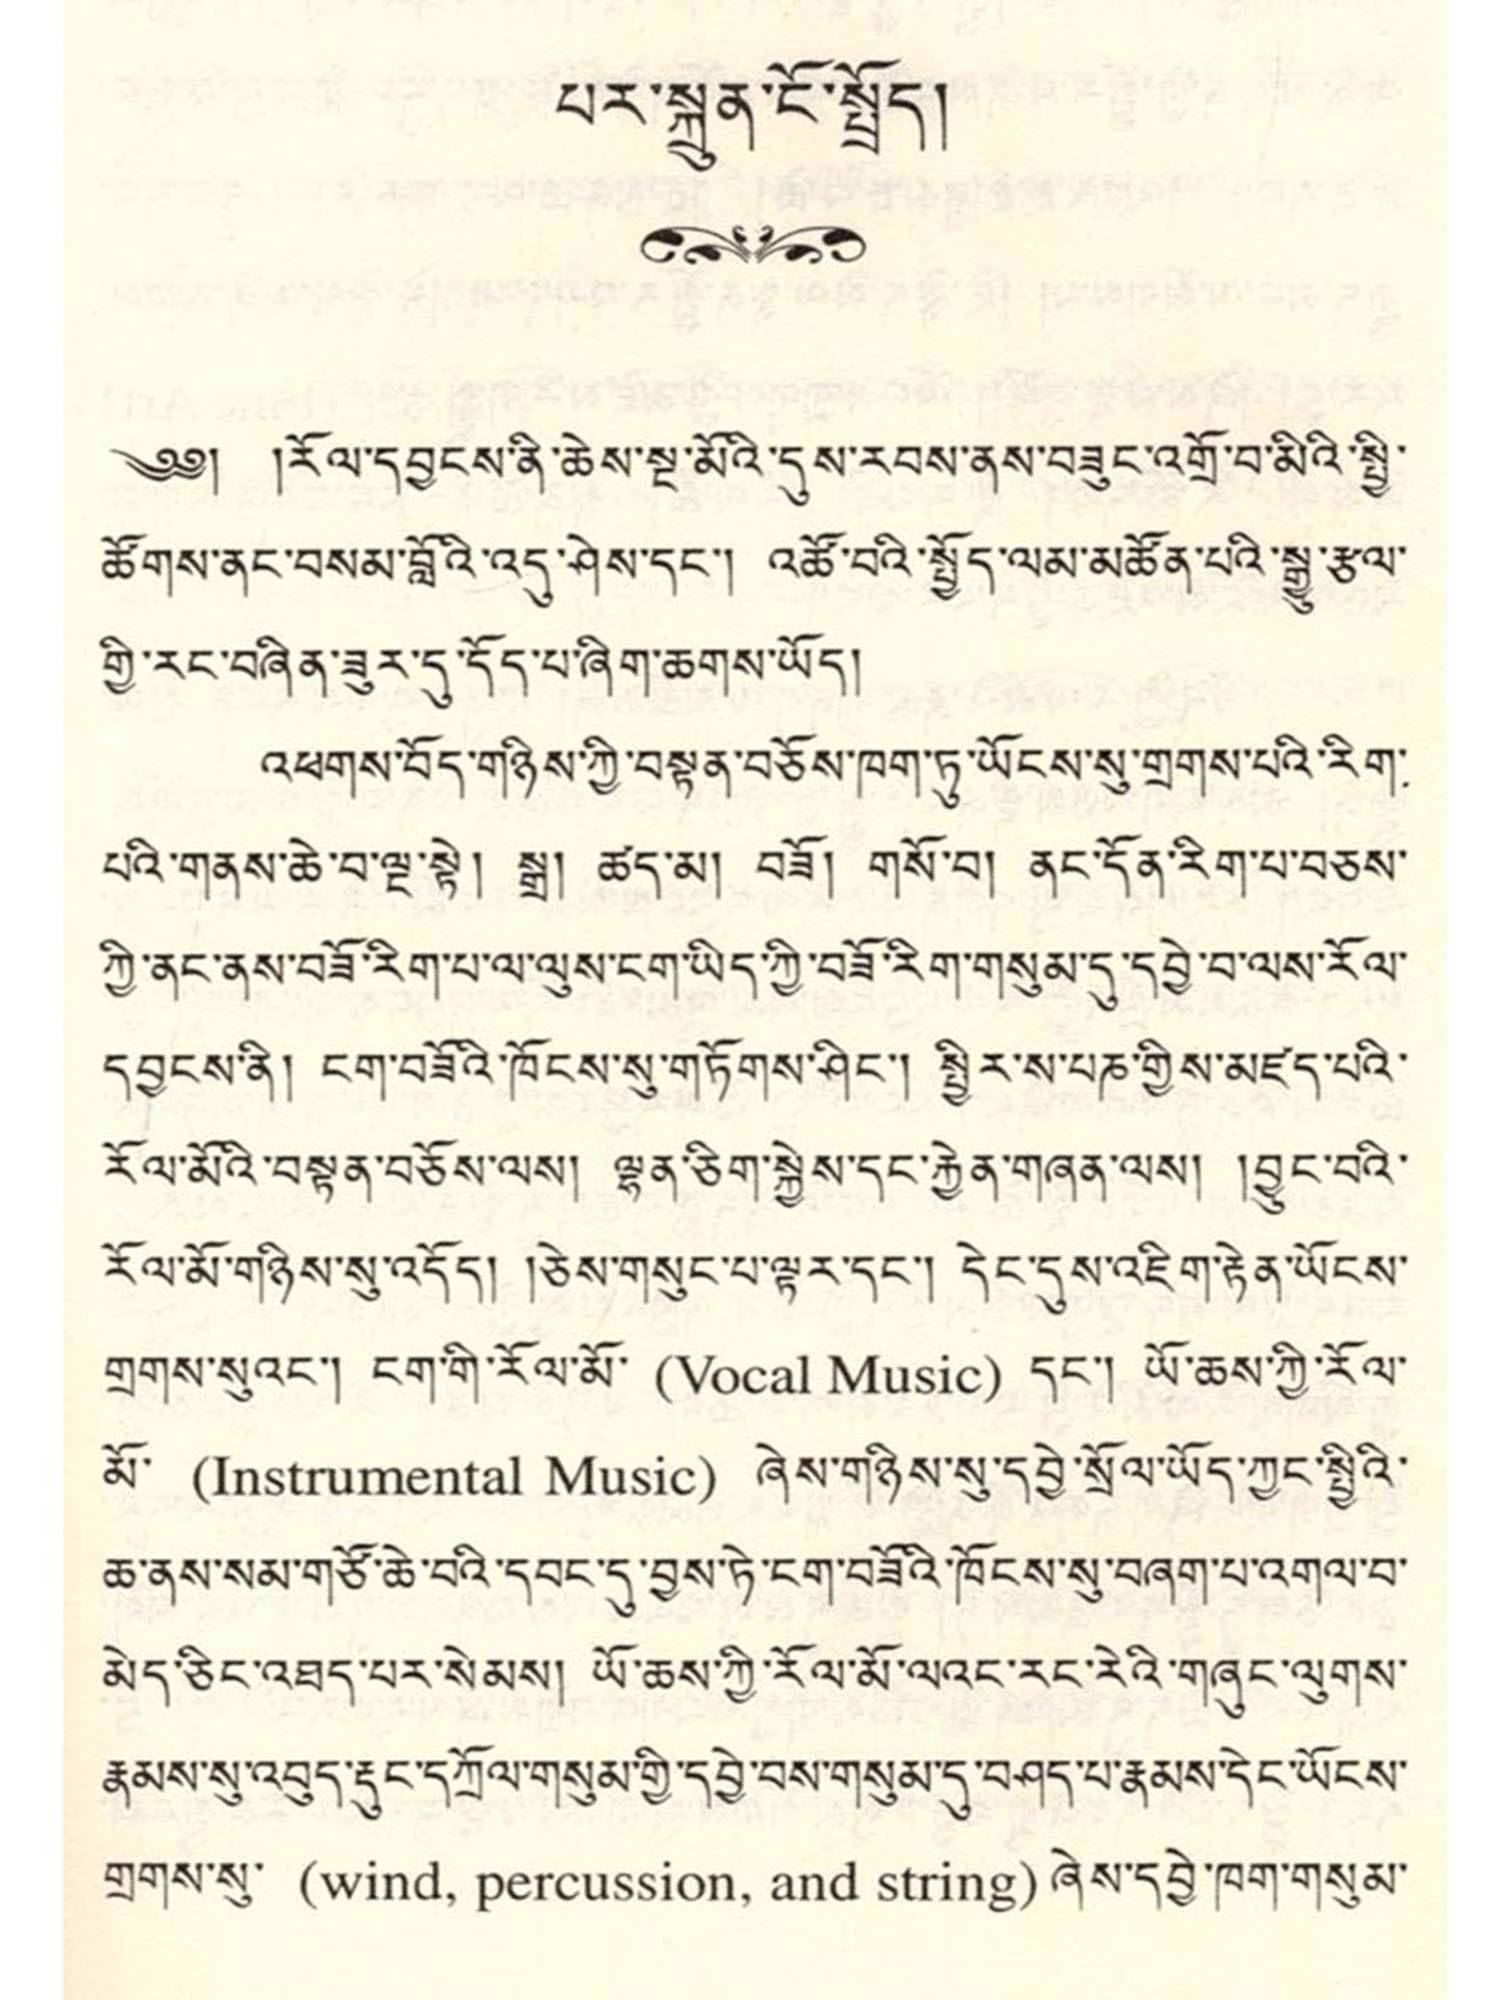 པར་སྐྲུན་ངོ་སྤྲོད།
༄༅། །རོལ་དབྱངས་ནི་ཆེས་སྔ་མོའི་དུས་རབས་ནས་བཟུང་འགྲོ་བ་མིའི་སྤྱི་
ཚོགས་ནང་བསམ་བློའི་འདུ་ཤེས་དང་། འཚོ་བའི་སྤྱོད་ལམ་མཚོན་པའི་སྒྱུ་རྩལ་
གྱི་རང་བཞིན་ཟུར་དུ་དོད་པ་ཞིག་ཆགས་ཡོད།
འཕགས་བོད་གཉིས་ཀྱི་བསྟན་བཅོས་ཁག་ཏུ་ཡོངས་སུ་གྲགས་པའི་རིག་
པའི་གནས་ཆེ་བ་ལྔ་སྟེ། སྒྲ། ཚད་མ། བཟོ། གསོ་བ། ནང་དོན་རིག་པ་བཅས་
ཀྱི་ནང་ནས་བཟོ་རིག་པ་ལ་ལུས་ངག་ཡིད་ཀྱི་བཟོ་རིག་གསུམ་དུ་དབྱེ་བ་ལས་རོལ་
དབྱངས་ནི། ངག་བཟོའི་ཁོངས་སུ་གཏོགས་ཤིང་། སྤྱིར་ས་པཎ་གྱིས་མཛད་པའི་
རོལ་མོའི་བསྟན་བཅོས་ལས། ལྷན་ཅིག་སྐྱེས་དང་རྐྱེན་གཞན་ལས། །བྱུང་བའི་
རོལ་མོ་གཉིས་སུ་འདོད། །ཅེས་གསུང་པ་ལྟར་དང་། དེང་དུས་འཇིག་རྟེན་ཡོངས་
གྲགས་སུའང་། ངག་གི་རོལ་མོ་ (Vocal Music) དང་། ཡོ་ཆས་ཀྱི་རོལ་
མོ་ (Instrumental Music) ཞེས་གཉིས་སུ་དབྱེ་སྲོལ་ཡོད་ཀྱང་སྤྱིའི་
ཆ་ནས་སམ་གཙོ་ཆེ་བའི་དབང་དུ་བྱས་ཏེ་ངག་བཟོའི་ཁོངས་སུ་བཞག་པ་འགལ་བ་
མེད་ཅིང་འཐད་པར་སེམས། ཡོ་ཆས་ཀྱི་རོལ་མོ་ལའང་རང་རེའི་གཞུང་ལུགས་
རྣམས་སུ་འབུད་རྡུང་དཀྲོལ་གསུམ་གྱི་དབྱེ་བས་གསུམ་དུ་བཤད་པ་རྣམས་དེང་ཡོངས་
གྲགས་སུ་ (wind, percussion, and string) ཞེས་དབྱེ་ཁག་གསུམ་